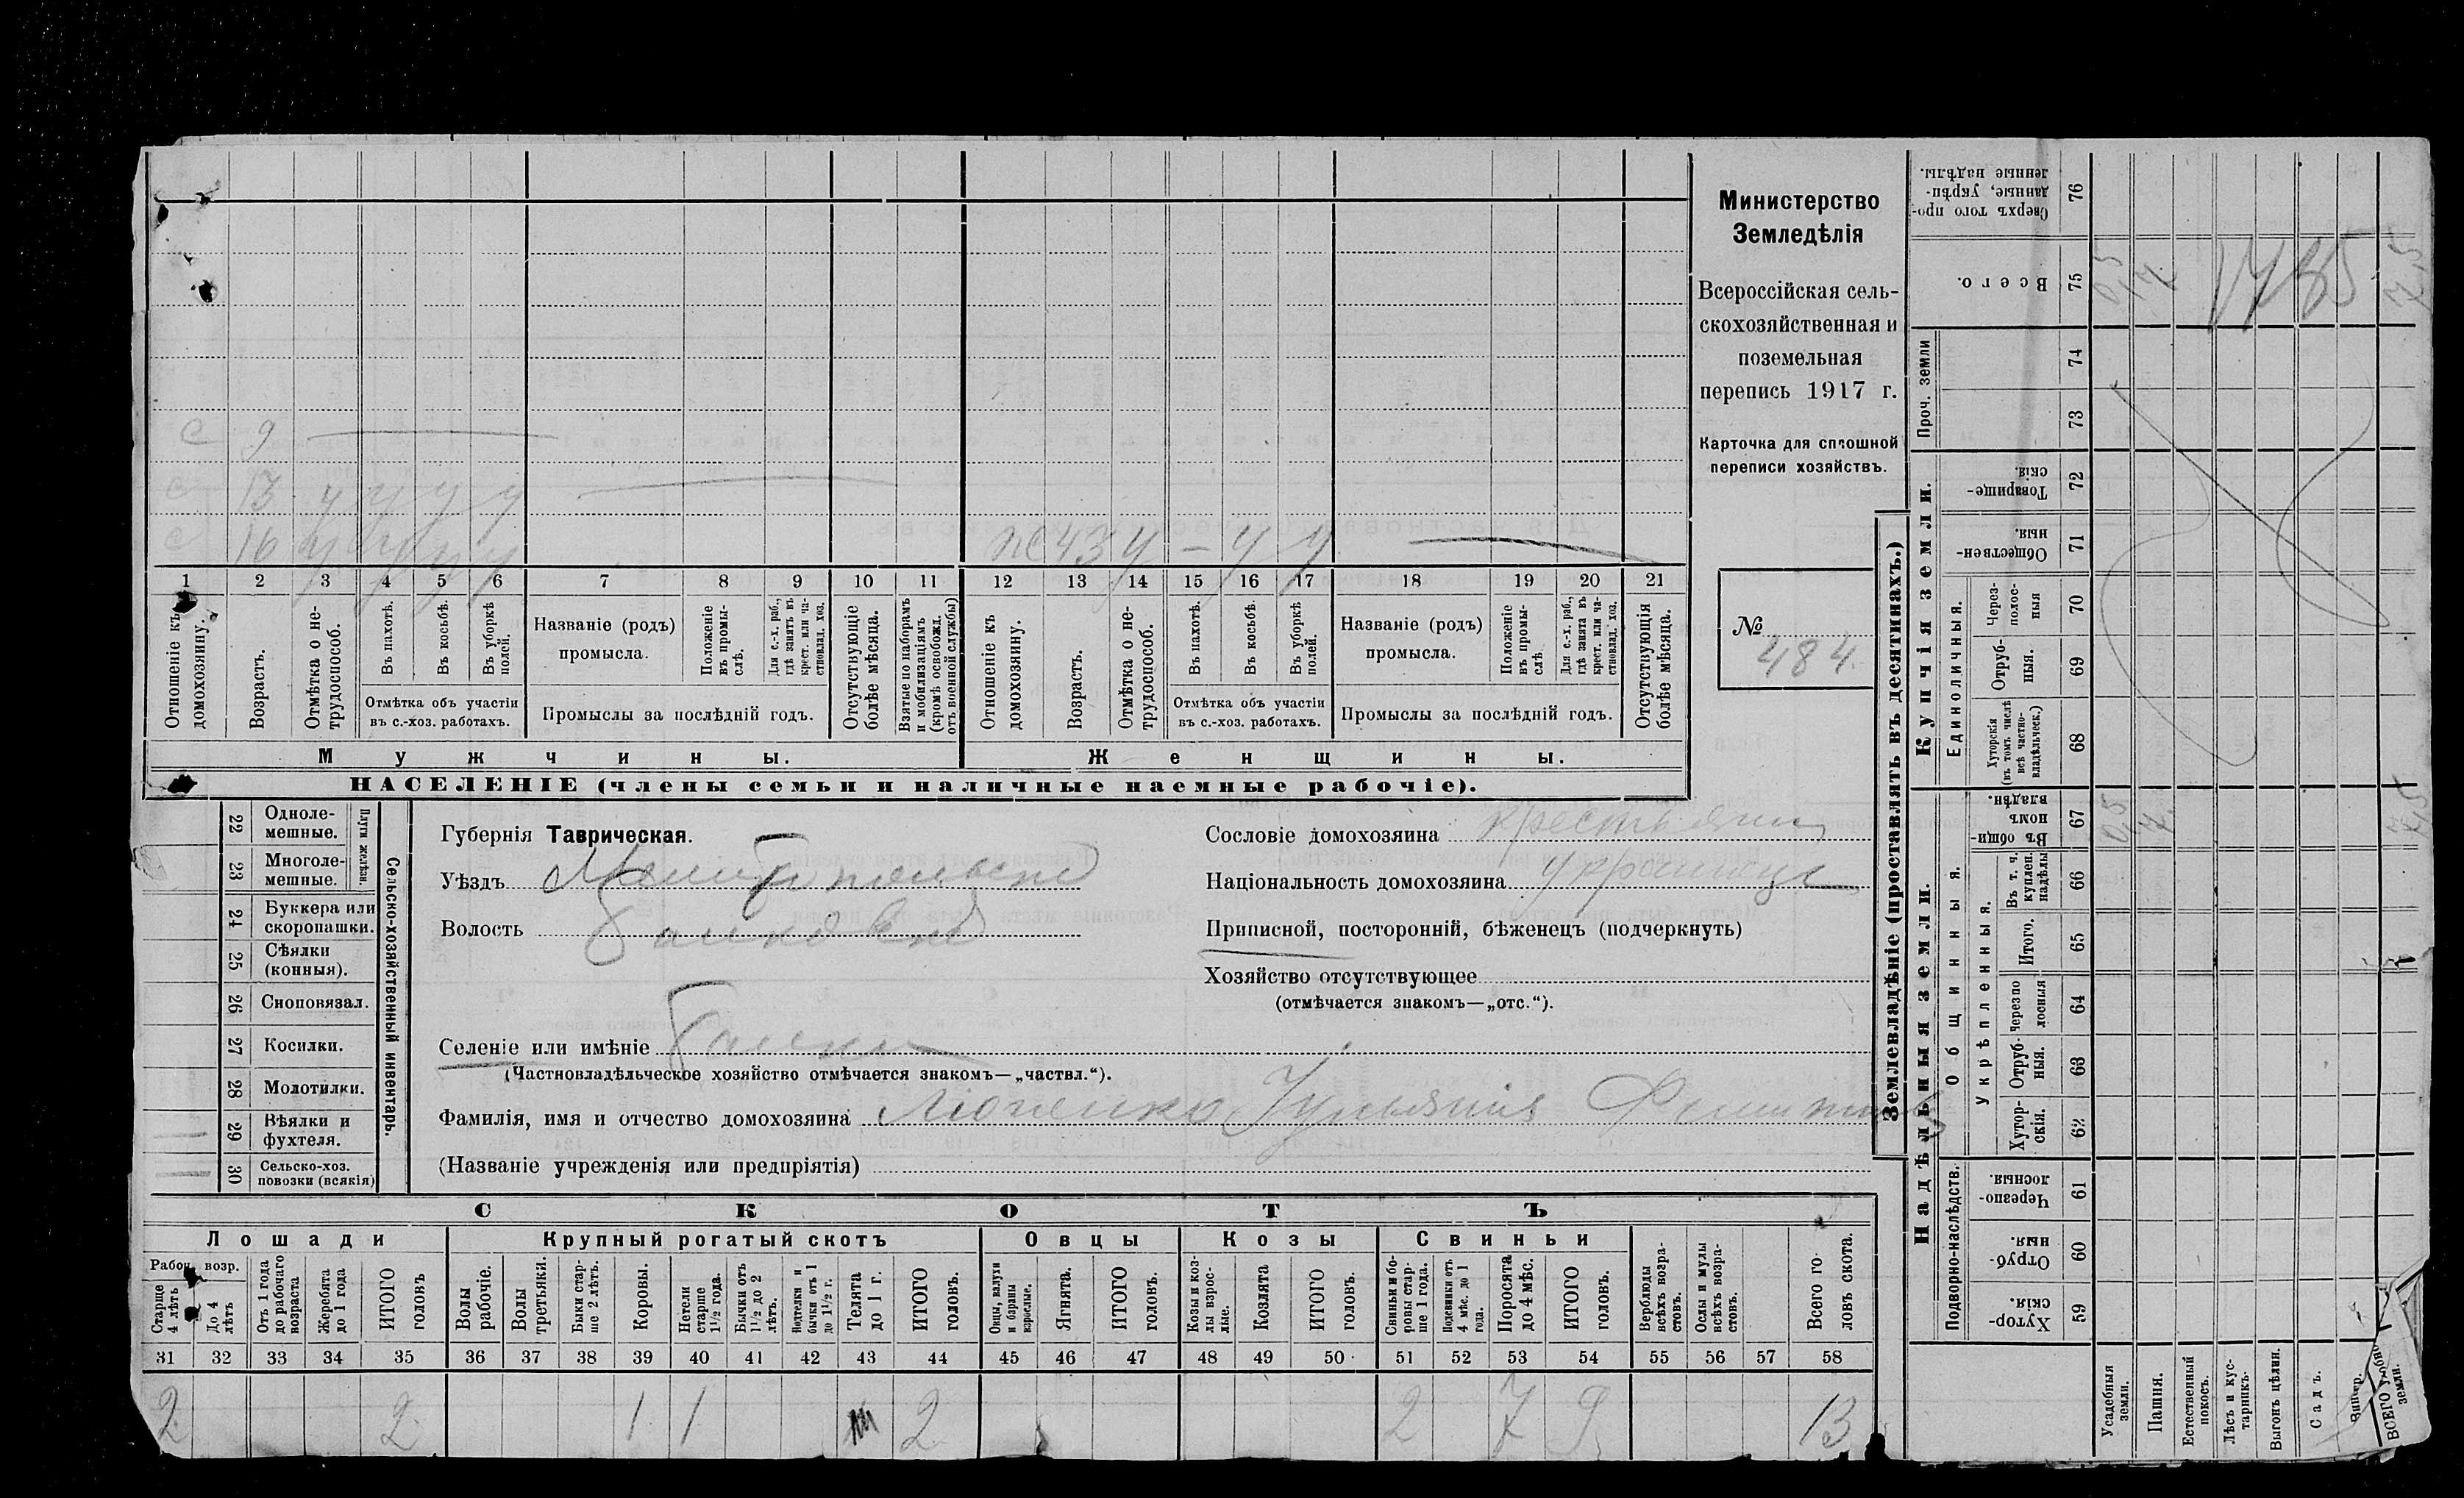 с 9
с 13 ч ч ч ч
с 16 ч ч ч ч
ж 43 ч — ч ч
1 2 3 4 5 6 7 8 9 10 11 12 13 14 15 16 17 18 19 20 21
Отношеніе къ домохозяину.
Возрастъ.
Отмѣтка о не-трудоспособ.
Въ пахотѣ.
Въ косьбѣ.
Въ уборкѣ полей.
Отмѣтка объ участіи
въ с.-хоз. работахъ.
Названіе (родъ)
промысла.
Положеніе въ промы-слѣ.
Для с.-х. раб., гдѣ занятъ въ крест. или ча-стновлад. хоз.
Промыслы за послѣдній годъ.
Отсутствующіе болѣе мѣсяца.
Взятые по наборамъ и мобилизаціямъ (кромѣ освобожд. отъ военной службы)
Отношеніе къ домохозяину.
Возрастъ.
Отмѣтка о не-трудоспособ.
Въ пахотѣ.
Въ косьбѣ.
Въ уборкѣ полей.
Отмѣтка объ участіи
въ с.-хоз. работахъ.
Названіе (родъ)
промысла.
Положеніе въ промы-слѣ
Для с.-х. раб., гдѣ занята въ крест. или ча-стновлад. хоз.
Промыслы за послѣдній годъ.
Отсутствующія болѣе мѣсяца.
Мужчины.
Женщины.
НАСЕЛЕНІЕ (члены семьи и наличные наемные рабочіе).
Министерство
Земледѣлія
Всероссійская сель-
скохозяйственная и
поземельная
перепись 1917 г.
Карточка для сплошной
переписи хозяйствъ.
№
484
22 Одноле-мешные.
23 Многоле-мешные.
Плуги желѣзн.
24 Буккера или скоропашки.
25 Сѣялки (конныя).
26 Сноповязал.
27 Косилки.
28 Молотилки.
29 Вѣялки и фухтеля.
30 Сельско-хоз. повозки (всякія)
Сельско-хозяйственный инвентарь.
Губернія Таврическая.
Уѣздъ Мелитопольскій
Волость Балковск
Селеніе или имѣніе Балки
(Частновладѣльческое хозяйство отмѣчается знакомъ—„частвл.“).
Фамилія, имя и отчество домохозяина
(Названіе учрежденія или предпріятія)
Сословіе домохозяина крестьянин
Національность домохозяина украинец
Приписной, посторонній, бѣженецъ (подчеркнуть)
Хозяйство отсутствующее
(отмѣчается знакомъ—„отс.“).
СКОТЪ
Лошади
Крупный рогатый скотъ
Овцы
Козы
Свиньи
Рабоч. возр.
Старше 4 лѣтъ
До 4 лѣтъ
Отъ 1 года до рабочаго возраста
Жеребята до 1 года
ИТОГО головъ
Волы рабочіе.
Волы третьяки.
Быки стар-ше 2 лѣтъ.
Коровы.
Нетели старше 1½ года.
Бычки отъ 1½ до 2 лѣтъ.
Нетелки и бычки отъ 1 до 1½ г.
Телята до 1 г.
ИТОГО головъ.
Овцы, валухи и бараны взрослые.
Ягнята.
ИТОГО головъ.
Козы и коз-лы взрос-лые.
Козлята
ИТОГО головъ.
Свиньи и бо-ровы стар-ше 1 года.
Подсвинки отъ 4 мѣс. до 1 года.
Поросята до 4 мѣс.
ИТОГО головъ.
Верблюды всѣхъ возра-стовъ.
Ослы и мулы всѣхъ возра-стовъ.
Всего го-ловъ скота.
31 32 33 34 35 36 37 38 39 40 41 42 43 44 45 46 47 48 49 50 51 52 53 54 55 56 57 58
2 2 1 1 2 2 7 9 13
Землевладѣніе (проставлять въ десятинахъ.)
Надѣльныя земли.
Купчія земли.
Проч. земли
Подворно-наслѣдств.
Общинныя.
Укрѣпленныя.
Единоличныя.
Сверхъ того про-данные, укрѣп-ленные надѣлы. 76
Всего. 75 0,5 7
74
73
Товарище-скія. 72
Обществен-ныя. 71
Через-полос-ныя 70
Отруб-ныя. 69
Хуторскія (въ томъ числѣ всѣ частно-владѣльческ.) 68
Въ общи-номъ владѣн. 67 0,5 7 7,5
Въ т. ч. куплен. надѣлы 66
Итого. 65
Черезпо лосныя 64
Отруб-ныя. 63
Хутор-скія. 62
Черезпо-лосныя. 61
Отруб-ныя. 60
Хутор-скія. 59
Усадебныя земли.
Пашня.
Естественный покосъ.
Лѣсъ и кус-тарникъ.
Выгонъ цѣлин.
Садъ.